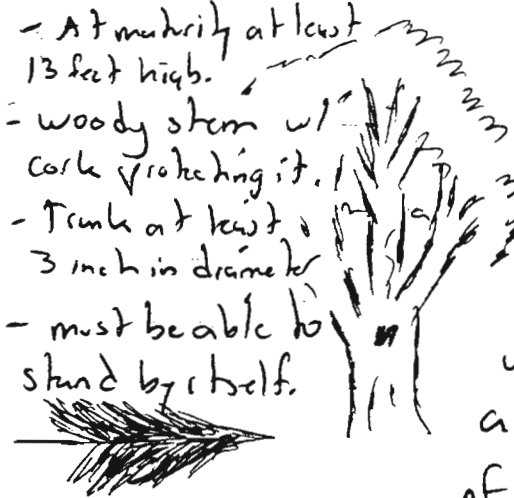 - At maturity at least
13 feet high.
- woody stem w/
cork protecting it.
- Trunk at least
3 inch in diameter
- must be able to
stand by itself.
a
of